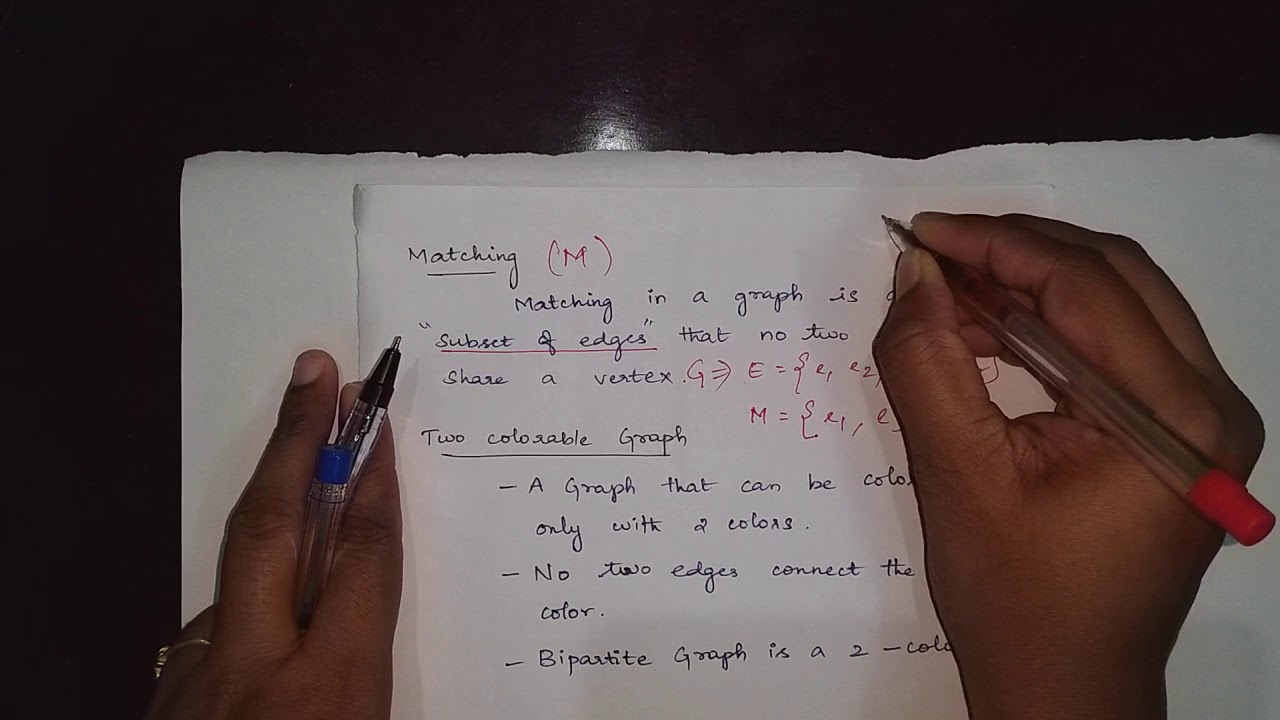 Matching (M)
Matching in a graph is a
"Subset of edges" that no two
share a vertex. G⇒ E = {e1 e2,
M = {e1, e
Two colorable Graph
- A Graph that can be colo
only with 2 colors.
- No two edges connect the
color.
- Bipartite Graph is a 2 - colo